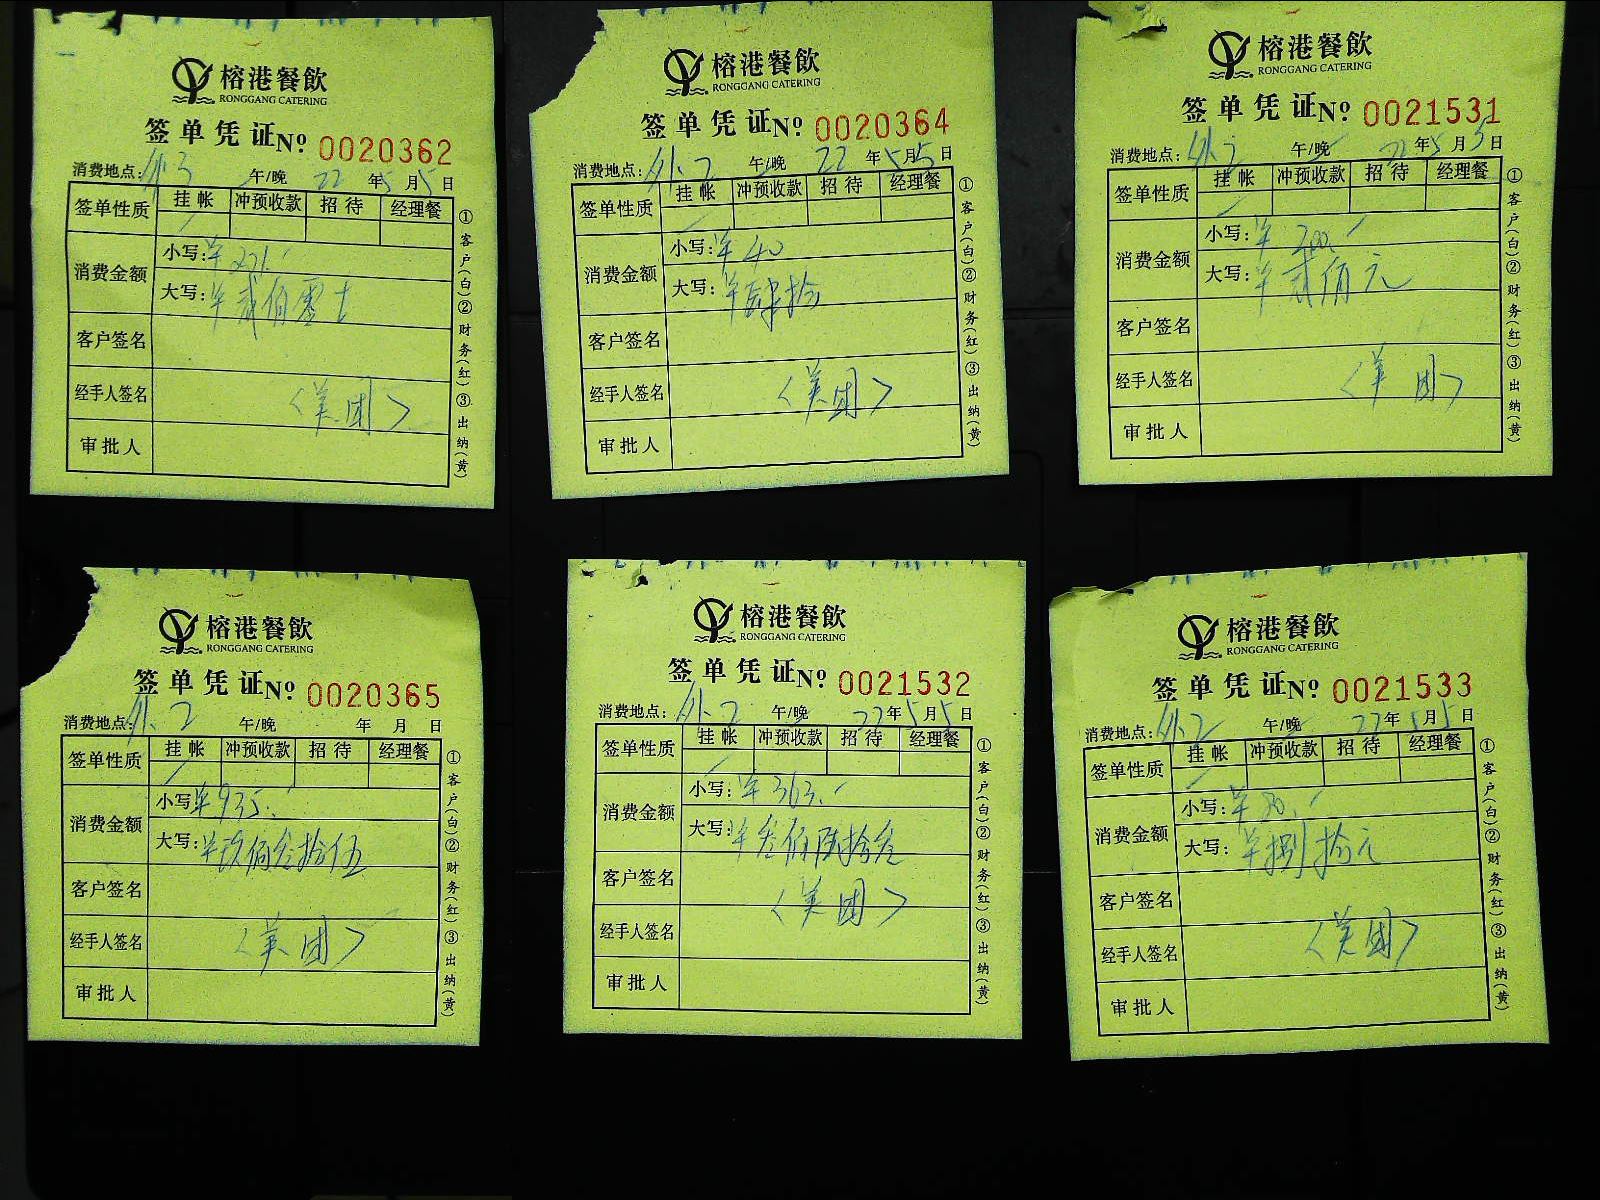 榕港餐飲
RONGGANG CATERING
签单凭证 Nº 0020362
消费地点: 外3 午/晚 22年5月5日
签单性质 挂帐 冲预收款 招待 经理餐
消费金额 小写:
大写: 羊贰佰零
客户签名
经手人签名 〈美团〉
审批人
①客户(白)②财务(红)③出纳(黄)
榕港餐飲
RONGGANG CATERING
签单凭证 Nº 0020364
消费地点: 外2 午/晚 22年5月5日
签单性质 挂帐 冲预收款 招待 经理餐
消费金额 小写: 羊40
大写: 羊肆拾
客户签名
经手人签名 〈美团〉
审批人
①客户(白)②财务(红)③出纳(黄)
榕港餐飲
RONGGANG CATERING
签单凭证 Nº 0021531
消费地点: 外2 午/晚 22年5月5日
签单性质 挂帐 冲预收款 招待 经理餐
消费金额 小写: 羊200.-
大写: 羊贰佰元
客户签名
经手人签名 〈美团〉
审批人
①客户(白)②财务(红)③出纳(黄)
榕港餐飲
RONGGANG CATERING
签单凭证 Nº 0020365
消费地点: 外2 午/晚 年 月 日
签单性质 挂帐 冲预收款 招待 经理餐
消费金额 小写: 羊935.-
大写: 羊玖佰叁拾伍
客户签名
经手人签名 〈美团〉
审批人
①客户(白)②财务(红)③出纳(黄)
榕港餐飲
RONGGANG CATERING
签单凭证 Nº 0021532
消费地点: 外2 午/晚 22年5月5日
签单性质 挂帐 冲预收款 招待 经理餐
消费金额 小写: 羊363.-
大写: 羊叁佰陆拾叁
客户签名 〈美团〉
经手人签名
审批人
①客户(白)②财务(红)③出纳(黄)
榕港餐飲
RONGGANG CATERING
签单凭证 Nº 0021533
消费地点: 外2 午/晚 22年5月5日
签单性质 挂帐 冲预收款 招待 经理餐
消费金额 小写: 羊80.-
大写: 羊捌拾元
客户签名
经手人签名 〈美团〉
审批人
①客户(白)②财务(红)③出纳(黄)